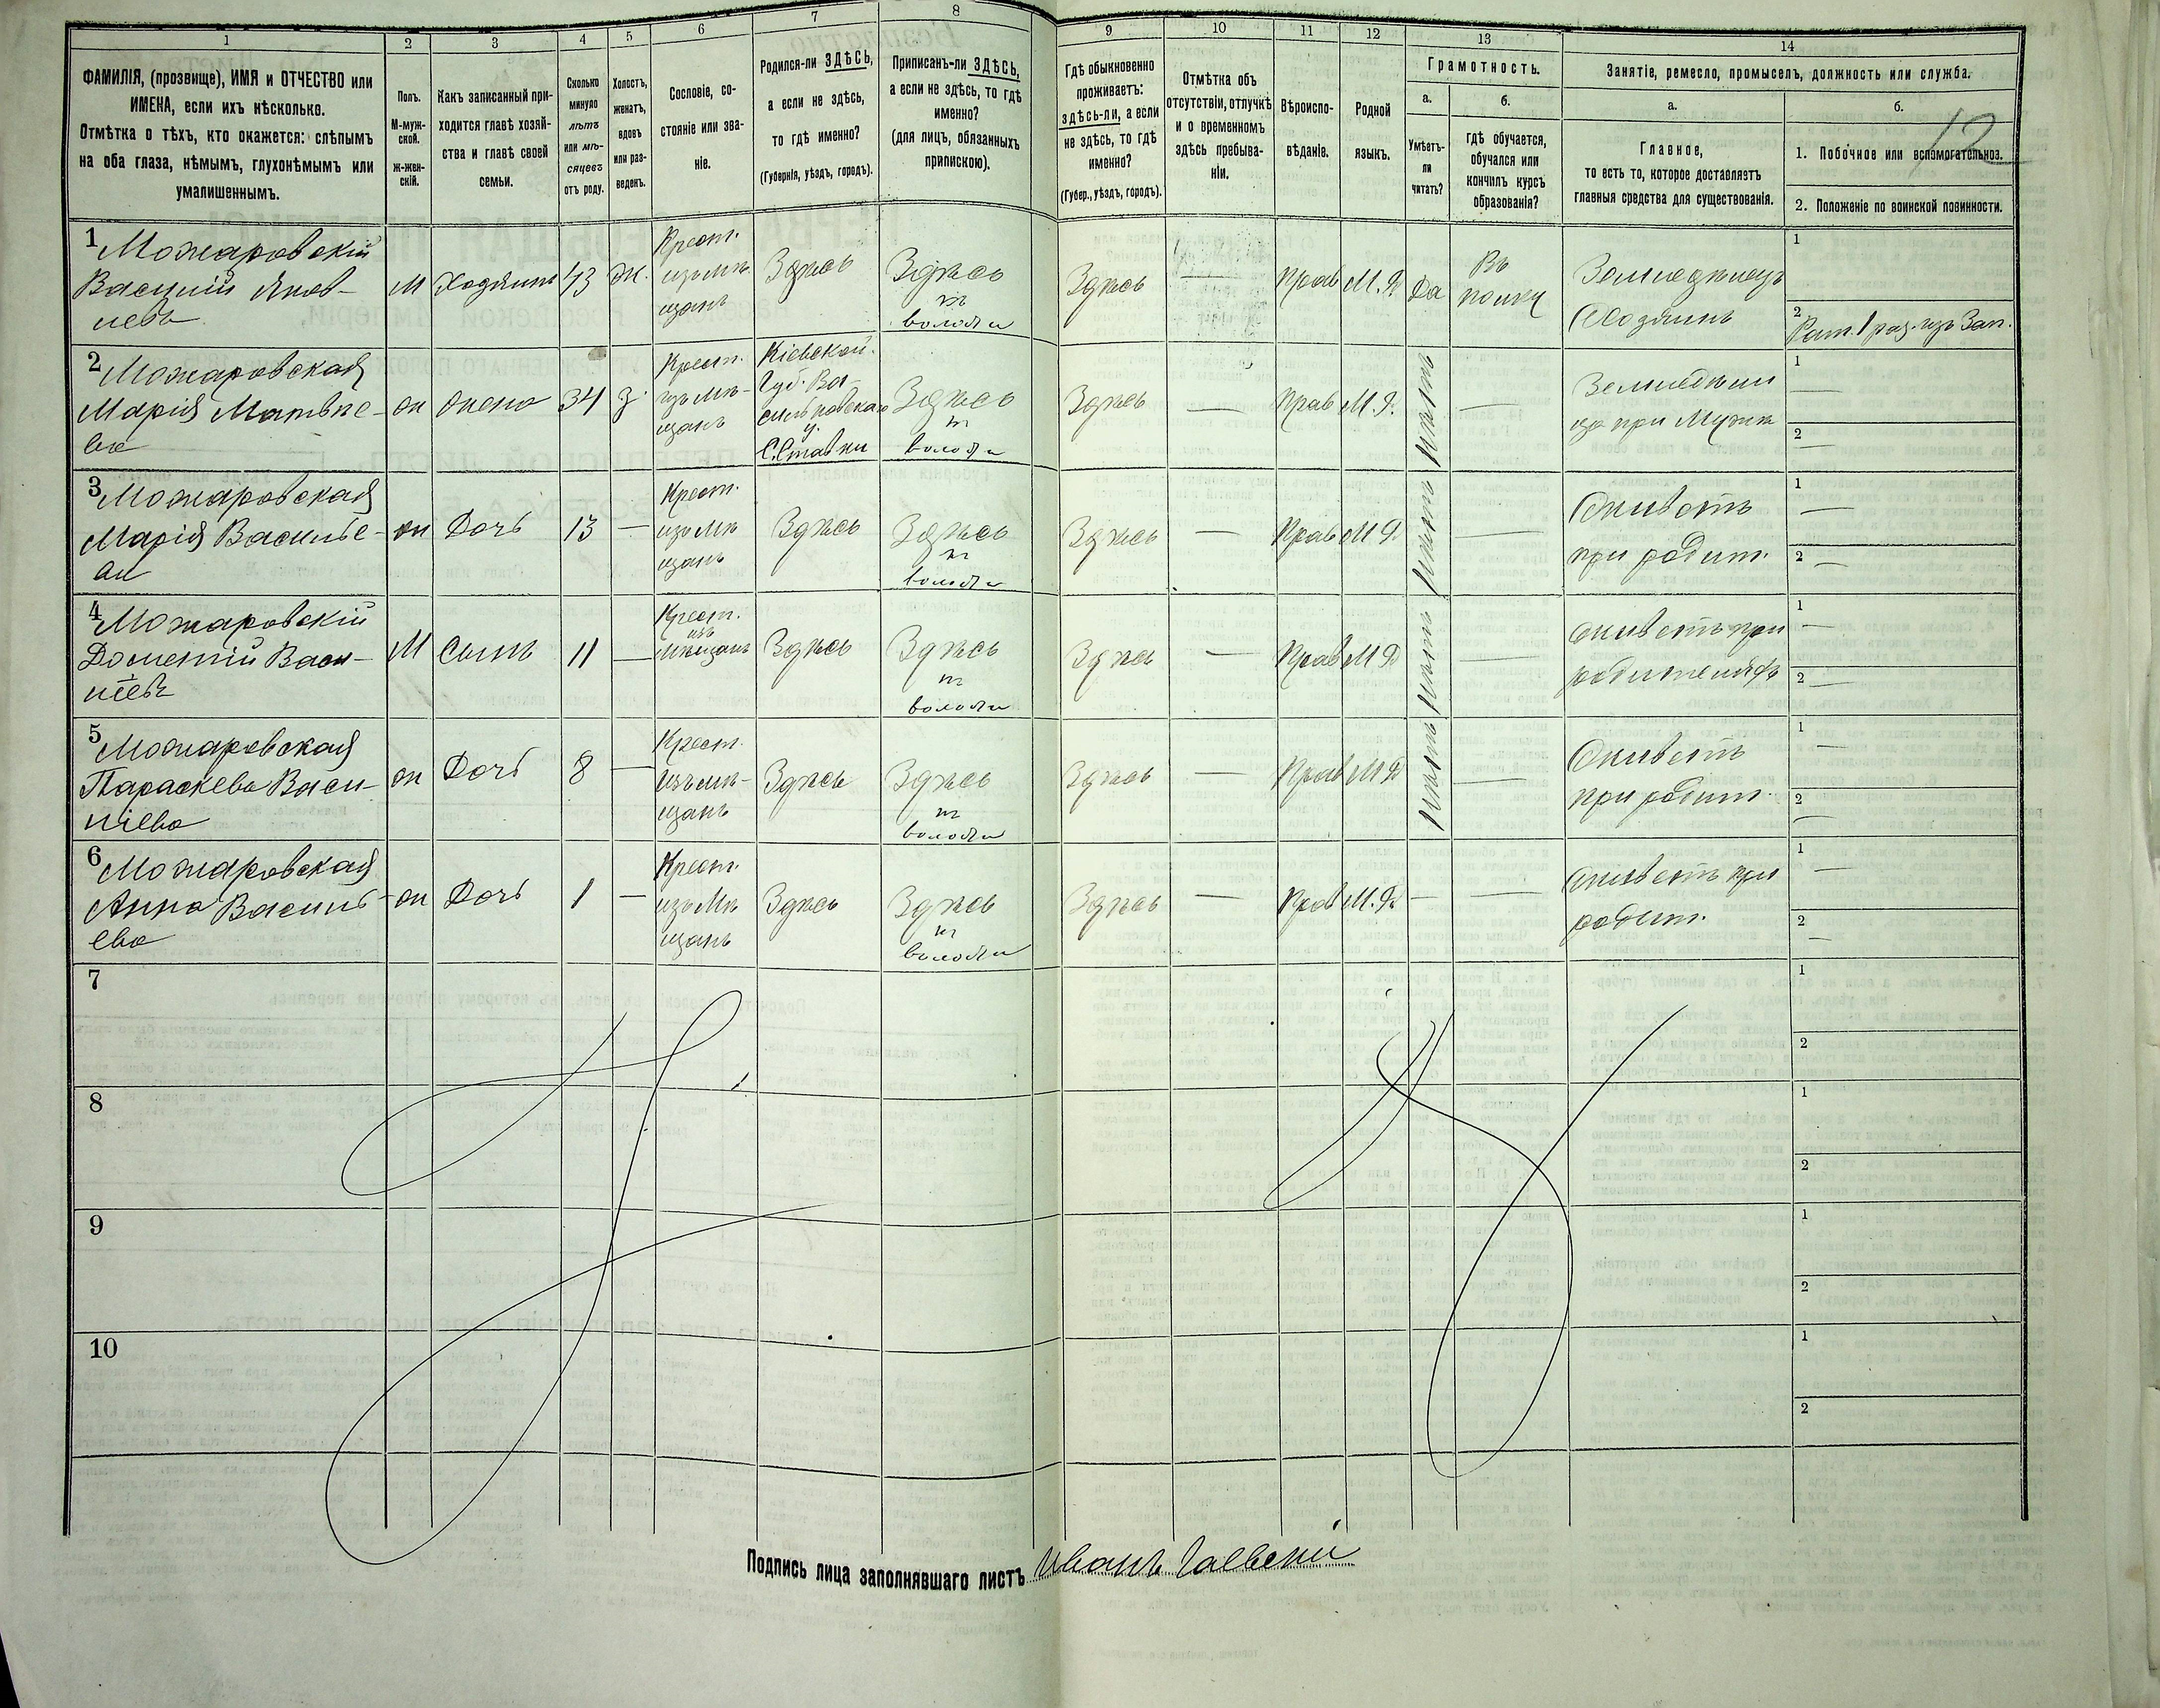 1 2 3 4 5 6 7 8 9 10 11 12 13 14
ФАМИЛІЯ, (прозвище), ИМЯ и ОТЧЕСТВО или
ИМЕНА, если ихъ нѣсколько.
Отмѣтка о тѣхъ, кто окажется: слѣпымъ
на оба глаза, нѣмымъ, глухонѣмымъ или
умалишеннымъ.
Полъ.
М-муж-
ской.
ж-жен-
скій.
Какъ записанный при-
ходится главѣ хозяй-
ства и главѣ своей
семьи.
Сколько
минуло
лѣтъ
или мѣ-
сяцевъ
отъ роду.
Холостъ,
женатъ,
вдовъ
или раз-
веденъ.
Сословіе, со-
стояніе или зва-
ніе.
Родился-ли ЗДѢСЬ,
а если не здѣсь,
то гдѣ именно?
(Губернія, уѣздъ, городъ).
Приписанъ-ли ЗДѢСЬ,
а если не здѣсь, то гдѣ
именно?
(для лицъ, обязанныхъ
припискою).
Гдѣ обыкновенно
проживаетъ:
здѣсь-ли, а если
не здѣсь, то гдѣ
именно?
(Губер., уѣздъ, городъ).
Отмѣтка объ
отсутствіи, отлучкѣ
и о временномъ
здѣсь пребыва-
ніи.
Вѣроиспо-
вѣданіе.
Родной
языкъ.
Грамотность.
а.
Умѣетъ-
ли
читать?
б.
гдѣ обучается,
обучался или
кончилъ курсъ
образованія?
Занятіе, ремесло, промыселъ, должность или служба.
а.
Главное,
то есть то, которое доставляетъ
главныя средства для существованія.
б.
1. Побочное или вспомогательное.
2. Положеніе по воинской повинности.
12
1 Можаровскій
Василій Яков-
левъ
М
Хозяинъ
43
Ж.
Крест.
изъ мѣ-
щанъ
Здѣсь
Здѣсь
волости
Здѣсь
—
Прав
М. Я
Да
Въ
полку
Земледѣлецъ
Хозяинъ
1
2
Рат. 1 раз. изъ Зап.
2 Можаровская
Марія Матвѣе-
ва
Ж
Жена
34
З.
Крест.
изъ мѣ-
щанъ
Кіевской.
Губ. Ва-
сильковскаго
у.
С. Ставки
Здѣсь
волости
Здѣсь
—
Прав
М. Я.
нѣтъ
—
Земледѣли
ца при Мужѣ
1 —
2 —
3 Можаровская
Марія Василье-
ва
Ж
Дочь
13
—
Крест.
изъ мѣ
щанъ
Здѣсь
Здѣсь
волости
Здѣсь
—
Прав
М Я
нѣтъ
—
Живетъ
при родит.
1 —
2 —
4 Можаровскій
Дометій Васи-
ліевъ
М
Сынъ
11
—
Крест.
изъ
мѣщанъ
Здѣсь
Здѣсь
волости
Здѣсь
—
Прав
М Я
нѣтъ
—
живетъ при
родителяхъ
1 —
2 —
5 Можаровская
Параскева Васи-
ліева
Ж
Дочь
8
—
Крест.
изъ мѣ-
щанъ
Здѣсь
Здѣсь
волости
Здѣсь
—
Прав
М Я
нѣтъ
—
Живетъ
при родит.
1 —
2 —
6 Можаровская
Анна Василь-
ева
Ж
Дочь
1
—
Крест.
изъ Мѣ
щанъ
Здѣсь
Здѣсь
волости
Здѣсь
—
Прав
М. Я.
—
—
живетъ при
родит.
1 —
2 —
7
1
2
8
1
2
9
1
2
10
1
2
Подпись лица заполнявшаго листъ Иванъ